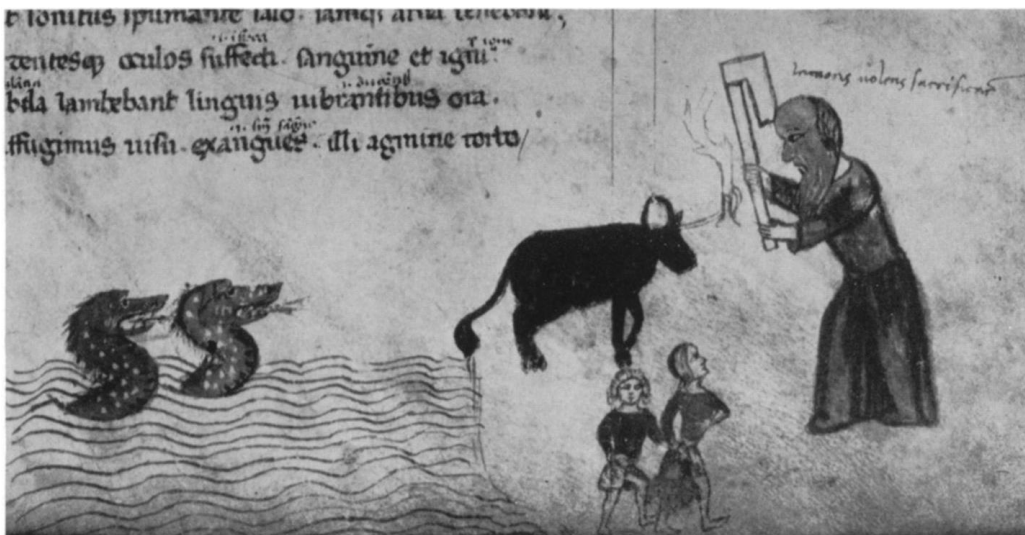 t sonitus spumante salo. iamq; arua tenebant;
dentesq; oculos suffecti. sanguine et igni
bila lambebant linguis uibrantibus ora.
ffugimus uisu. exangues. illi agmine torto
uolens sacrificare